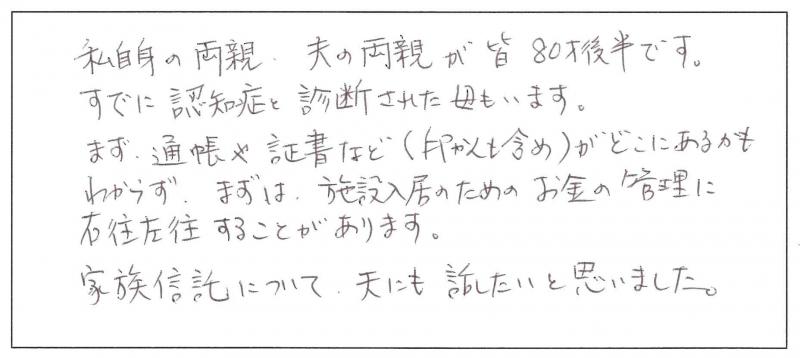 私自身の両親、夫の両親が皆80才後半です。
すでに認知症と診断された母もいます。
まず、通帳や証書など(印かんも含め)がどこにあるかも
わからず、まずは、施設入居のためのお金の管理に
右往左往することがあります。
家族信託について、夫にも話したいと思いました。